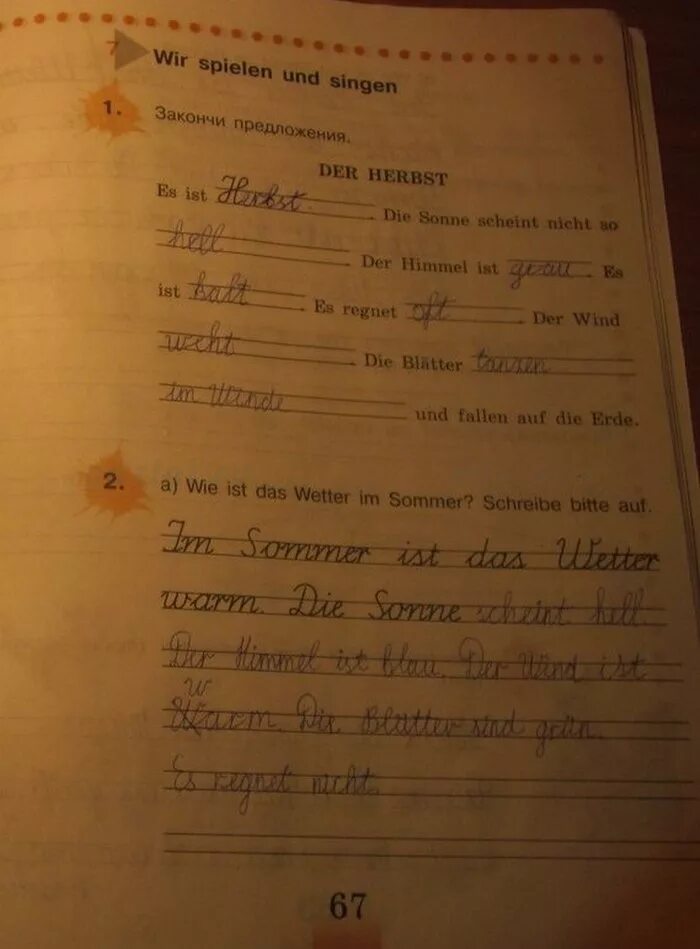 7 Wir spielen und singen
1. Закончи предложения.
DER HERBST
Es ist Herbst. Die Sonne scheint nicht so
hell. Der Himmel ist grau. Es
ist kalt. Es regnet oft. Der Wind
weht. Die Blätter tanzen
im Winde und fallen auf die Erde.
2. a) Wie ist das Wetter im Sommer? Schreibe bitte auf.
Im Sommer ist das Wetter
warm. Die Sonne scheint hell.
Der Himmel ist blau. Der Wind ist
w
Warm. Die Blätter sind grün.
Es regnet nicht.
67